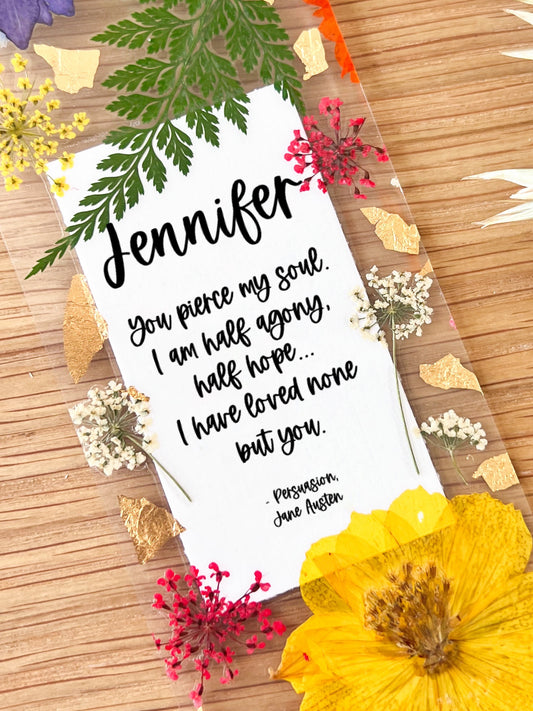 Jennifer
You pierce my soul.
I am half agony,
half hope...
I have loved none
but you.
- Persuasion,
Jane Austen